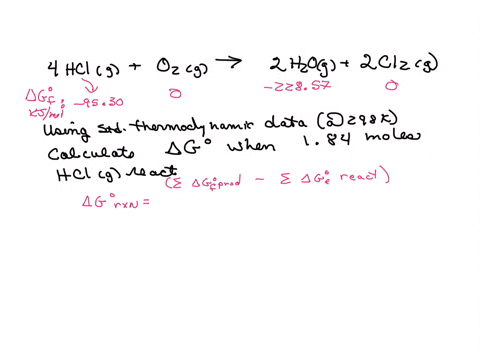 4 HCl (g) + O₂ (g) → 2 H₂O(g) + 2 Cl₂ (g)
ΔG°f, KJ/mol -95.30 0 -228.57 0
Using Std. thermodynamic data (@298K)
Calculate ΔG° when 1.84 moles
HCl (g) react
ΔG°rxn = (Σ ΔG°f prod - Σ ΔG°f react)